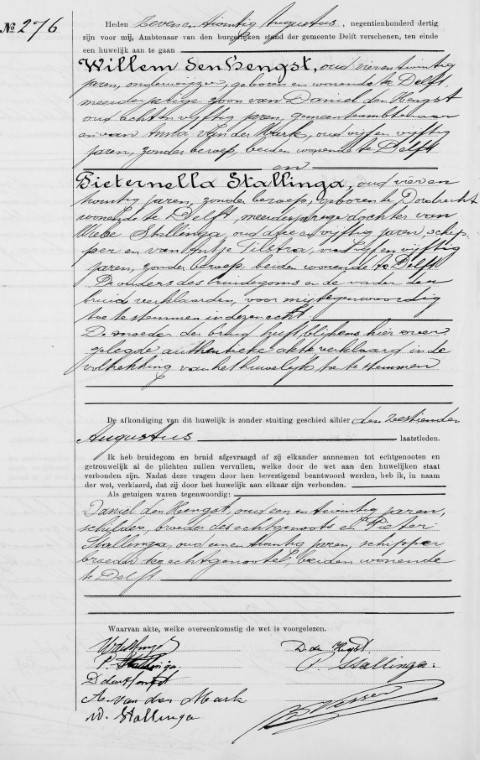 No 276
Heden zevenentwintig Augustus, negentienhonderd dertig
zijn voor mij, Ambtenaar van den burgerlijken stand der gemeente Delft verschenen, ten einde
een huwelijk aan te gaan
Willem den Hengst, oud vierentwintig
jaren, onderwijzer, geboren en wonende te Delft,
meerderjarige zoon van Daniel den Hengst
oud achtenvijftig jaren, gemeenteambtenaar
en van Anna van der Mark, oud vijfenvijftig
jaren, zonder beroep, beiden wonende te Delft
en
Pieternella Stallinga, oud vieren
twintig jaren, zonder beroep, geboren te Dordrecht
wonende te Delft, meerderjarige dochter van
Stallinga, oud drieenvijftig jaren, schip
per en van Tilstra, oud vijftig
jaren, zonder beroep, beiden wonende te Delft
De ouders des bruidegoms en de vader der
bruid verklaarden, voor mij tegenwoordig
toe te stemmen in dezen echt.
De moeder der bruid heeft blijkens hier over
gelegde authentieke akte verklaard in de
voltrekking van het huwelijk toe te stemmen
De afkondiging van dit huwelijk is zonder stuiting geschied alhier den zestienden
Augustus laatstleden.
Ik heb bruidegom en bruid afgevraagd of zij elkander aannemen tot echtgenooten en
getrouwelijk al de plichten zullen vervullen, welke door de wet aan den huwelijken staat
verbonden zijn. Nadat deze vragen door hen bevestigend beantwoord werden, heb ik, in naam
der wet, verklaard, dat zij door het huwelijk aan elkaar zijn verbonden.
Als getuigen waren tegenwoordig:
Daniel den Hengst, oud eenentwintig jaren,
schilder, broeder des echtgenoots en Pieter
Stallinga, oud eenentwintig jaren, schipper
broeder der echtgenoote, beiden wonende
te Delft
Waarvan akte, welke overeenkomstig de wet is voorgelezen.
P. Stallinga
D. den Hengst
P. Stallinga
D den Hengst
A. van der Mark
W. Stallinga